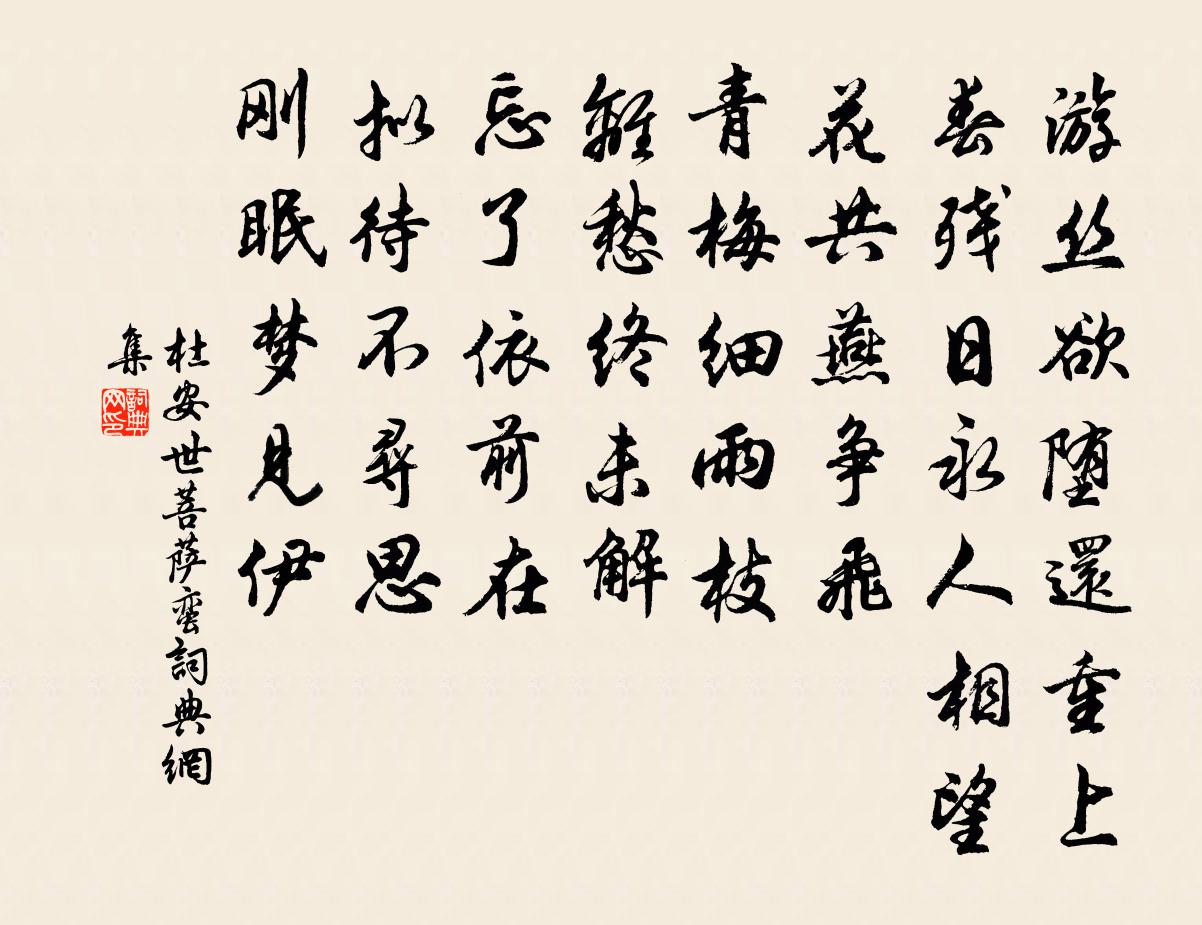 游丝欲堕還重上
春残日永人相望
花共燕争飛
青梅細雨枝
離愁终未解
忘了依前在
拟待不尋思
刚眠梦見伊
杜安世菩萨蛮詞典網
集
詞典
网印